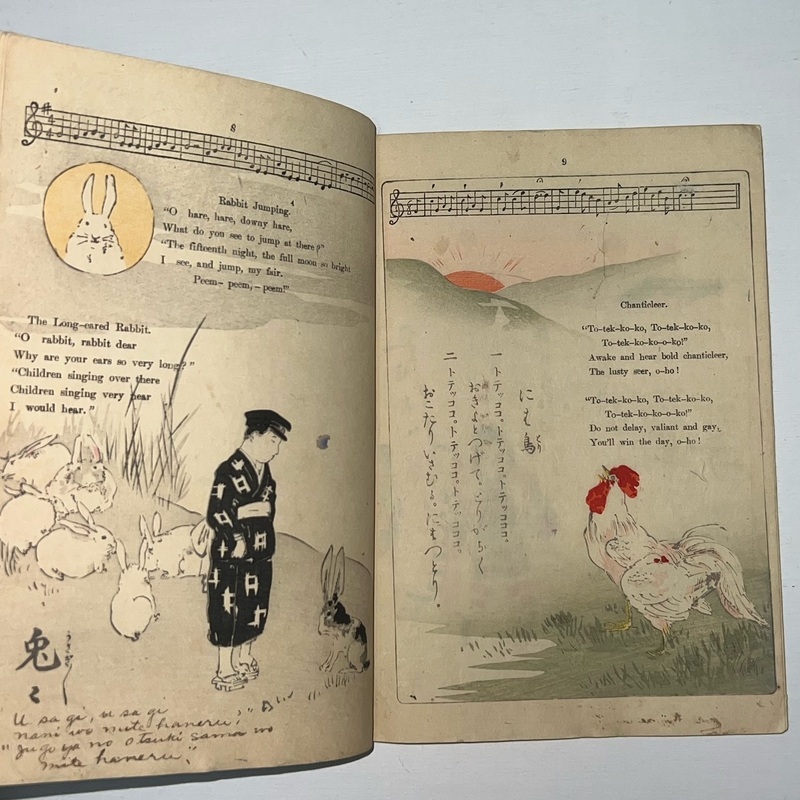 8
Rabbit Jumping.
"O hare, hare, downy hare,
What do you see to jump at there?"
"The fifteenth night, the full moon so bright
I see, and jump, my fair.
Peem- peem, - peem!"
The Long-eared Rabbit.
"O rabbit, rabbit dear
Why are your ears so very long?"
"Children singing over there
Children singing very near
I would hear."
兎
うさぎ
U sa gi, u sa gi
nani wo mite haneru?"
"Jugoya no Otsuki sama wo
mite haneru".
9
Chanticleer.
"To-tek-ko-ko, To-tek-ko-ko,
To-tek-ko-ko-o-ko!"
Awake and hear bold chanticleer,
The lusty seer, o-ho!
"To-tek-ko-ko, To-tek-ko-ko,
To-tek-ko-ko-o-ko!"
Do not delay, valiant and gay,
You'll win the day, o-ho!
には鳥
一 トテッココ。トテッココ。トテッココココ。
おきよとつげて。とりがなく
二 トテッココ。トテッココ。トテッココココ。
おこたりいさむる。にはつとり。